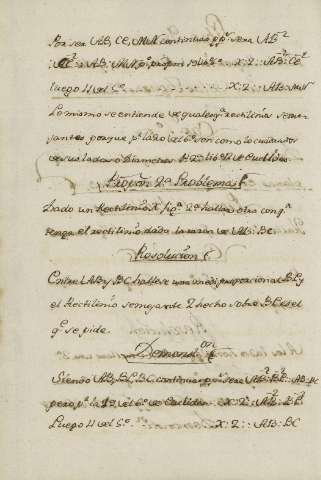 Por ser AB, CE, MN continuas ppᵉˢ sera AB²
CE² :: AB. MN pᵒ X : Z :: AB² : CE²
luego 11 del 5º X : Z :: AB : MN
Lo mismo se entiende de qualesqª rectilineas seme-
jantes porque pʳ la del 6º son como los quadrados
de sus lados
Propⁿ 2ª Problema
Dado un Rectilineo X figª 2ª hallar otro con qⁿ
tenga el rectilineo dado la razon de AB : BC
Resolucion
Entre AB y BC hallese una media proporcional BL y
el Rectilineo semejante Z hecho sobre BL es el
qᵉ se pide.
Demonsᵒⁿ
Siendo AB, BL, BC continuas ppᵉˢ sera AB² : BL² :: AB : BC
pero pʳ la del 6º de Euclides X : Z :: AB² : BL²
Luego 11 del 5º X : Z :: AB : BC